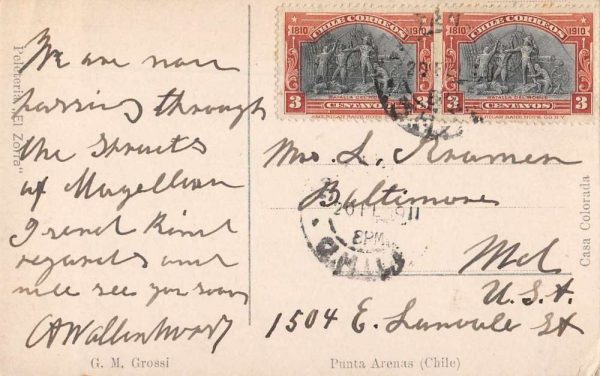 We are now
passing through
the Straits
of Magellan
I send kind
regards and
will see you soon
Peleteria „El Zorra"
G. M. Grossi
CHILE CORREOS
1810 1910
3 CENTAVOS 3
AMERICAN BANK NOTE CO. N.Y.
CHILE CORREOS
1810 1910
3 CENTAVOS 3
AMERICAN BANK NOTE CO. N.Y.
L. Kramer
Baltimore
Md
U.S.A.
1504 E. St
8PM
CHILE
Casa Colorada
Punta Arenas (Chile)